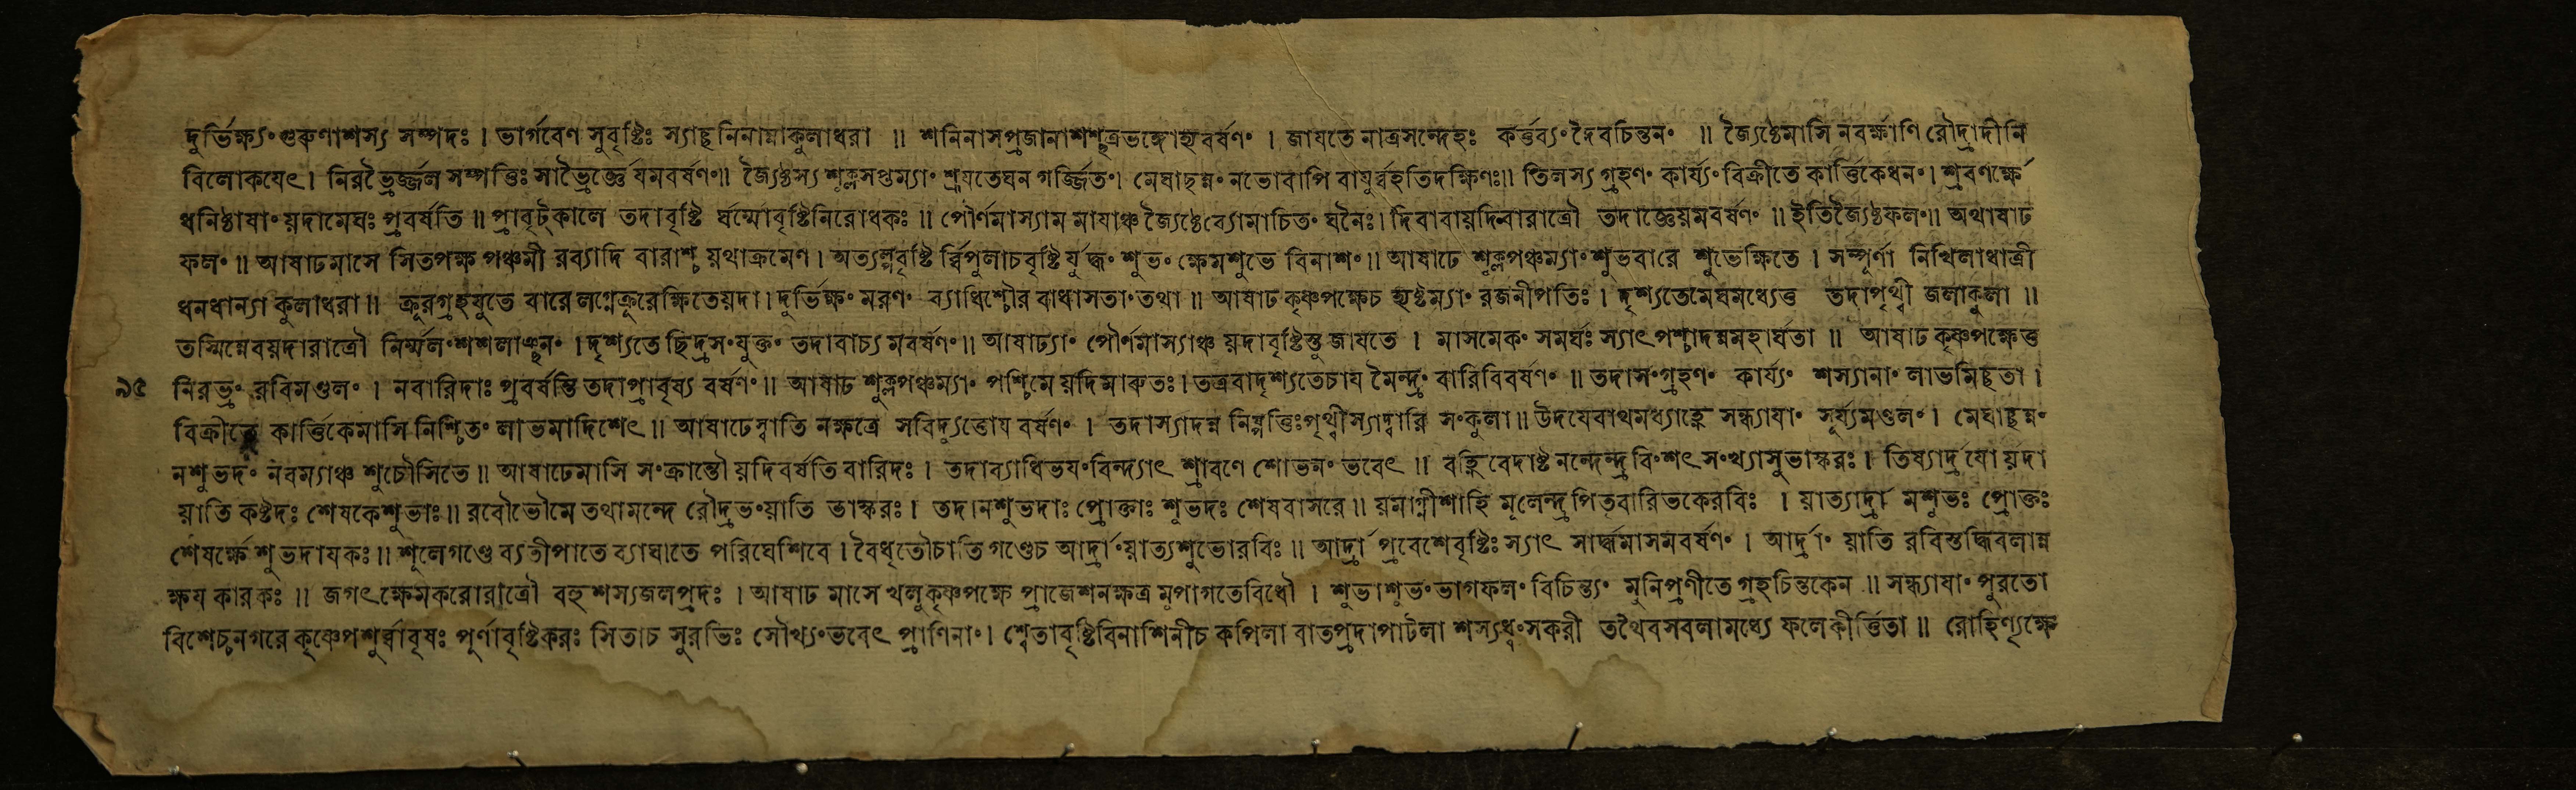 দুর্ভিক্ষ্যং গুরুণাশস্য সম্পদঃ । ভার্গবেণ সুবৃষ্টিঃ স্যাচ্ছনিনান্নাকুলাধরা ॥ শনিনাসপ্রজানাশশ্ছত্রভঙ্গোহ্যবর্ষণং । জাযতে নাত্রসন্দেহঃ কর্ত্তব্যং দৈবচিন্তনং ॥ জ্যৈষ্ঠেমাসি নবর্ক্ষাণি রৌদ্রাদীনি
বিলোকযেৎ । নিরভ্রৈর্জ্জল সম্পত্তিঃ সাভ্রৈর্জ্ঞেযমবর্ষণং॥ জ্যৈষ্ঠস্য শুক্লসপ্তম্যাং শ্রূযতেঘন গর্জ্জিতং। মেঘাছন্নং নভোবাপি বাযুর্ব্বহতিদক্ষিণঃ॥ তিলস্য গ্রহণং কার্য্যং বিক্রীতে কার্ত্তিকেধনং । শ্রবণর্ক্ষে
ধনিষ্ঠাযাং য়দামেঘঃ প্রবর্ষতি ॥ প্রাবৃট্কালে তদাবৃষ্টি র্ঘর্ম্মোবৃষ্টিনিরোধকঃ ॥ পৌর্ণমাস্যাম মাযাঞ্চ জ্যৈষ্ঠেব্যোমাচিতং ঘনৈঃ। দিবাবায়দিবারাত্রৌ তদাজ্ঞেয়মবর্ষণং ॥ ইতিজ্যৈষ্ঠফলং॥ অথাষাঢ
ফলং ॥ আষাঢমাসে সিতপক্ষ পঞ্চমী রব্যাদি বারাশ্চ য়থাক্রমেণ । অত্যল্পবৃষ্টি র্ব্বিপুলাচবৃষ্টি র্যুদ্ধং শুভং ক্ষেমশুভে বিনাশং ॥ আষাঢে শুক্লপঞ্চম্যাং শুভবারে শুভেক্ষিতে । সম্পূর্ণা নিখিলাধাত্রী
ধনধান্যা কুলাধরা॥ ক্রূরগ্রহযুতে বারে লগ্নেক্রূরেক্ষিতেয়দা। দুর্ভিক্ষং মরণং ব্যাধিশ্চৌর বাধাসতাং তথা ॥ আষাঢ কৃষ্ণপক্ষেচ হ্যষ্টম্যাং রজনীপতিঃ । দৃশ্যতেমেঘমধ্যেত্ত তদাপৃথ্বী জলাকুলা ॥
তস্মিন্নেবয়দারাত্রৌ নির্ম্মলং শশলাঞ্ছনং । দৃশ্যতে ছিদ্রসংযুক্তং তদাবাচ্য মবর্ষণং ॥ আষাঢ্যাং পৌর্ণমাস্যাঞ্চ য়দাবৃষ্টিস্তু জাযতে । মাসমেকং সমর্ঘঃ স্যাৎ পশ্চাদন্নমহার্ঘতা ॥ আষাঢ কৃষ্ণপক্ষেত্ত
৯৫ নিরভ্রং রবিমণ্ডলং । নবারিদাঃ প্রবর্ষন্তি তদাপ্রাবৃষ্য বর্ষণং ॥ আষাঢ শুক্লপঞ্চম্যাং পশ্চিমে য়দিমারুতঃ । তত্রবাদৃশ্যতেচায মৈন্দ্রং বারিবিবর্ষণং ॥ তদাসংগ্রহণং কার্য্যং শস্যানাং লাভমিছতা ।
বিক্রীতে কার্ত্তিকেমাসি নিশ্চিতং লাভমাদিশেৎ ॥ আষাঢেস্বাতি নক্ষত্রে সবিদ্যুত্তোয বর্ষণং । তদাস্যাদন্ন নিষ্পত্তিঃপৃথ্বীস্যাদ্বারি সংকুলা॥ উদযেবাথমধ্যাহ্নে সন্ধ্যাযাং সূর্য্যমণ্ডলং । মেঘাচ্ছন্নং
নশুভদং নবম্যাঞ্চ শুচৌসিতে ॥ আষাঢেমাসি সংক্রান্তৌ য়দিবর্ষতি বারিদঃ । তদাব্যাধিভযংবিন্দ্যাৎ শ্রাবণে শোভনং ভবেৎ ॥ বহ্নিবেদাষ্ট নন্দেন্দ্রবিংশৎ সংখ্যাসুভাস্করঃ । তিষ্যার্দ্রযোয়দা
য়াতি কষ্টদঃ শেষকেশুভাঃ॥ রবৌভৌমে তথামন্দে রৌদ্রভংয়াতি ভাস্করঃ । তদানশুভদাঃ প্রোক্তাঃ শুভদঃ শেষবাসরে ॥ য়মাগ্নীশাহি মূলেন্দ্রপিতৃবারিভকেরবিঃ । য়াত্যার্দ্রা মশুভঃ প্রোক্তঃ
শেষর্ক্ষে শুভদাযকঃ॥ শূলেগণ্ডে ব্যতীপাতে ব্যাঘাতে পরিঘেশিবে । বৈধৃতৌচাতি গণ্ডেচ আর্দ্রাংয়াত্যশুভোরবিঃ ॥ আর্দ্রা প্রবেশেবৃষ্টিঃ স্যাৎ সার্দ্ধমাসমবর্ষণং । আর্দ্রাং য়াতি রবিস্তদ্ধিবলান্ন
ক্ষয কারকঃ ॥ জগৎক্ষেমকরোরাত্রৌ বহুশস্যজলপ্রদঃ । আষাঢ মাসে খলুকৃষ্ণপক্ষে প্রাজেশনক্ষত্র মুপাগতেবিধৌ । শুভাশুভংভাগফলং বিচিন্ত্যং মুনিপ্রণীতে গ্রহচিন্তকেন ॥ সন্ধ্যাযাং পুরতো
বিশেচ্চনগরে কৃষ্ণেপশুর্ব্বাবৃষঃ পূর্ণাবৃষ্টিকরঃ সিতাচ সুরভিঃ সৌখ্যংভবেৎ প্রাণিনাং। শ্বেতাবৃষ্টিবিনাশিনীচ কপিলা বাতপ্রদাপাটলা শস্যধ্বংসকরী তথৈবসবলামধ্যে ফলেকীর্ত্তিতা ॥ রোহিণ্যৃক্ষে